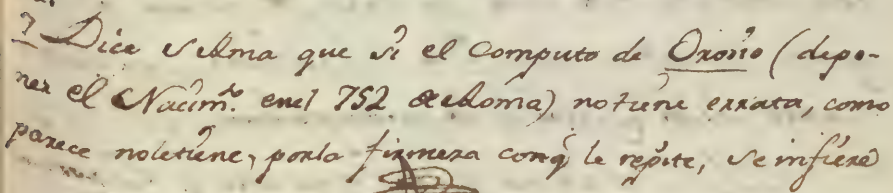 ? Dice S. Ilma que si el Computo de Orosio (depo-
ner el Nacim.to en el 752 de Roma) no tiene errata, como
parece no le tiene, por la firmeza con q le repite, se infiere